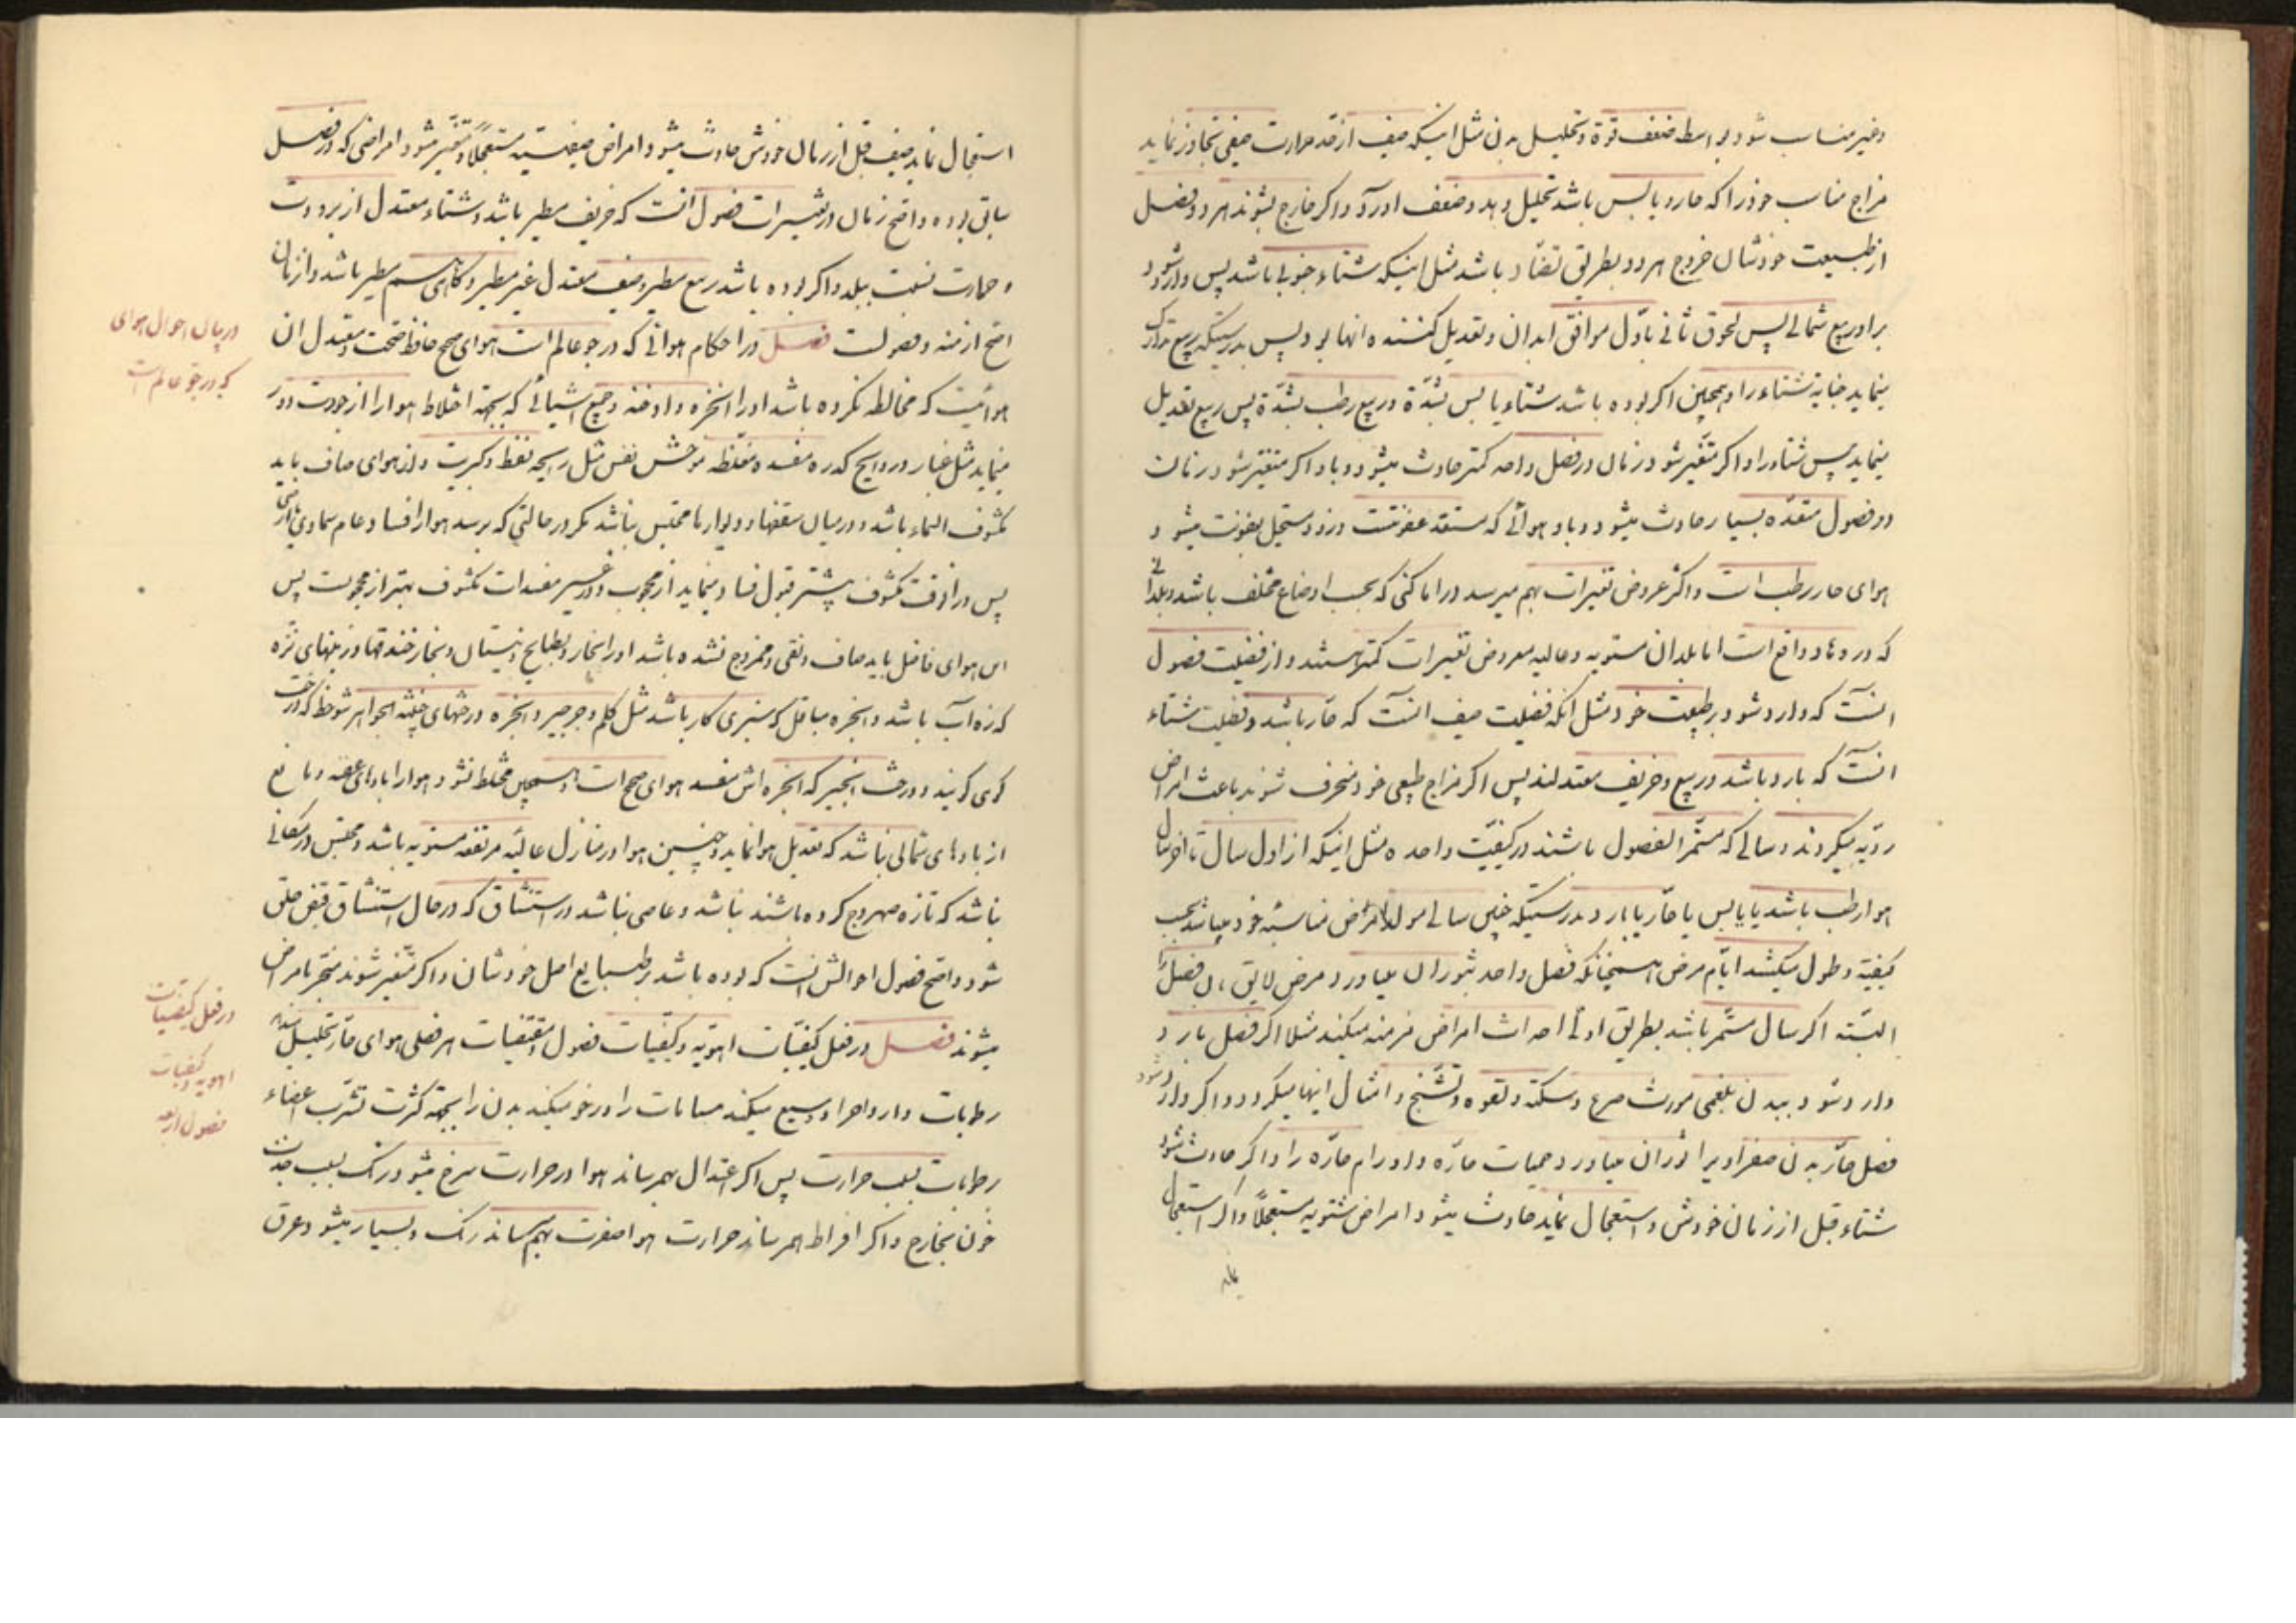 وغیر مناسب شود بواسطه ضعف قوة وتحلیل بدن مثل اینکه صیف از قدر حرارت صیفی تجاوز نماید
مزاج مناسب خود را که حار و یابس باشد تحلیل دهد وضعف اورد واکر خارج بشوند هر دو فصل
از طبیعت خودشان خروج هر دو بطریق تضاد باشد مثل اینکه شتاء جنوبی باشد پس وارد شود
براو ربیع شمالی پس لحوق ثانی باول موافق ابدان وتعدیل کننده انها بود پس بدرستیکه ربیع تدارک
مینماید جنایة شتاء را وهمچنین اکر بوده باشد شتاء یابس بشدّة وربیع رطب بشدّة پس ربیع تعدیل
مینماید یبس شتاء را واکر متغیر شود زمان در فصل واحد کمتر حادث میشود وباء واکر متغیر شود زمان
در فصول متعدّده بسیار حادث میشود وباء و هوائی که مستعد عفونتست وزود مستحیل بعفونت میشود
هوای حار رطب است واکثر عروض تغیرات بهم میرسد در اماکنی که بحسب اوضاع مختلف باشد وبلدانی
که در وهاد واقع است اما بلدان مستویه وعالیه معروض تغییرات کمتر هستند واز فضیلت فصول
انست که وارد شود بر طبیعت خود مثل انکه فضیلت صیف انست که حار باشد وفضیلت شتاء
انست که بارد باشد وربیع وخریف معتدلند پس اکر مزاج طبیعی خود منحرف شوند باعث امراض
ردیّه میکردند وسالی که مستمر الفصول باشند در کیفیّت واحده مثل اینکه از اول سال تا اخر سال
هوا رطب باشد یا یابس یا حار یا بارد بدرستیکه چنین سالی مولد امراض مناسبهٔ خود میباشد بحسب
کیفیّة وطول میکشد ایّام مرض همچنانکه فصل واحد بثوران میاورد مرض لایق ان فصل را
البتّه اکر سال مستمر باشد بطریق اولی احداث امراض مزمنه میکند مثلا اکر فصل بارد
وارد شود ببدن بلغمی مورث صرع وسکته ولقوه وتشنج وامثال اینها میکردد واکر وارد شود
فصل حار بدن صفراویرا ثوران میاورد حمیات حارّه واورام حارّه را واکر حادث شود
شتاء قبل از زمان خودش واستعجال نماید حادث میشود امراض شتویه مستعجلاً واکر استعجال
استعجال نماید صیف قبل از زمان خودش حادث میشود امراض صیفیه مستعجلاً ومتغیر میشود امراضی که در فصل
سابق بوده واصح زمان در تغییرات فصول انست که خریف مطیر باشد وشتاء معتدل از برودت
وحرارت نسبت ببلد واکر بوده باشد ربیع مطیر وصیف معتدل غیر مطیر وکاهی هم مطیر باشد از زمان
اصح ازمنه وفصولست فصل در احکام هوائی که در جو عالم است هوای صحیح حافظ صحت ومعتدل ان
هوائیست که مخالطه نکرده باشد او را ابخره وادخنه وجمیع اشیائی که بجهة اختلاط هوا را از جودت دور
مینماید مثل غبار وروایح کدره مفسده ومغلظه موحش نفس مثل ریحه نفط وکبریت وان هوای صاف باید
مکشوف السماء باشد ودر میان سقفها ودیوارها محتبس نباشد مکر در حالتی که برسد هوا را فساد عام سماوی
پس در انوقت مکشوف پیشتر قبول فساد مینماید از محجوب ودر غیر مفسدات مکشوف بهتر از محجوبست پس
این هوای فاضل باید صاف ونقی وممزوج نشده باشد او را بخار وبطایح ونیستان وبخار خندقها وزمینهای نزّه
که زه آب باشد وابخره مباقل که سبزی کار باشد مثل کلم وجرجیر وابخره درختهای خبیثه الجواهر شوحط که درخت
کوی کویند ودرخت انجیر که ابخره اش مفسد هوای صحیح است وهمچنین مختلط نشود هوا را بادهای عفنه ومانع
از بادهای شمالی نباشد که تعدیل هوا نماید وچنین هوا در منازل عالیه مرتفعه مستویه باشد ومحتبس در مکانی
نباشد که تازه صهروج کرده باشند نباشد وعاصی نباشد در استنشاق که در حال استنشاق قبض حلق
شود واصح فصول احوالش انست که بوده باشد بر طبایع اصل خودشان واکر متغیر شوند منجر بامراض
میشوند فصل در فعل کیفیّات اهویه وکیفیات فصول ومقتضیات هر فصلی هوای حار تحلیل
رطوبات دارد واحداد وسیع میکند مسامات را ورخو میکند بدن را بجهة کثرت تشرّب اعضاء
رطوبات بسبب حرارت پس اکر اعتدال بهم رساند هوا در حرارت سرخ میشود رنک بسبب جذب
خون بخارج واکر افراط بهم رساند حرارت هوا صفرت بهم میرساند رنک وبسیار میشود عرق
در بیان احوال هوای
که در جو عالم است
در فعل کیفیات
اهویه وکیفیات
فصول اربعه